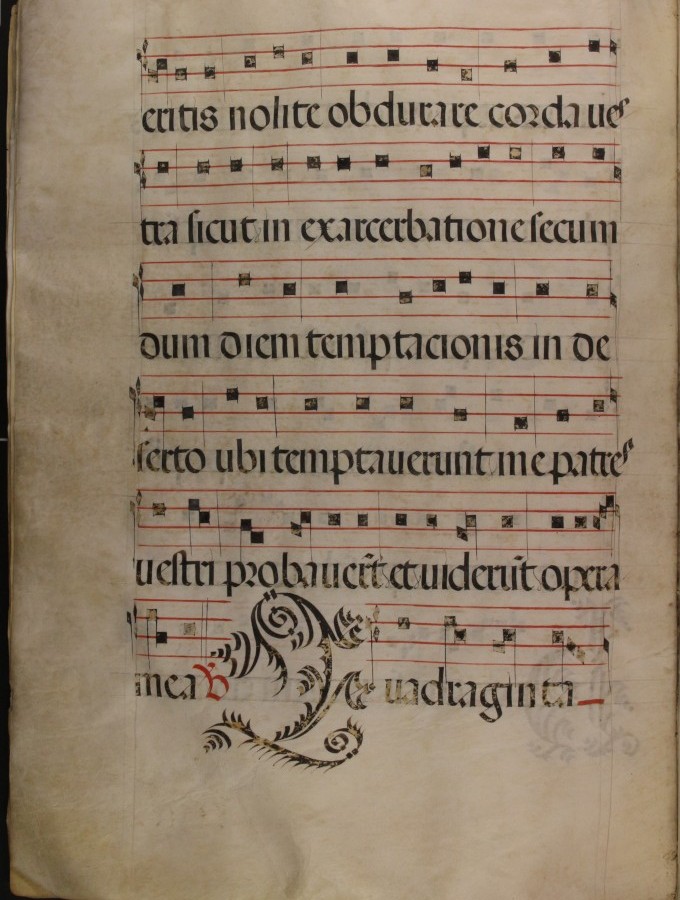 eritis nolite obdurare corda ues
tra sicut in exarcerbatione secum
dum diem temptacionis in de
serto ubi temptauerunt me patres
uestri probauer̃t et uiderũt opera
mea ℣ Quadraginta